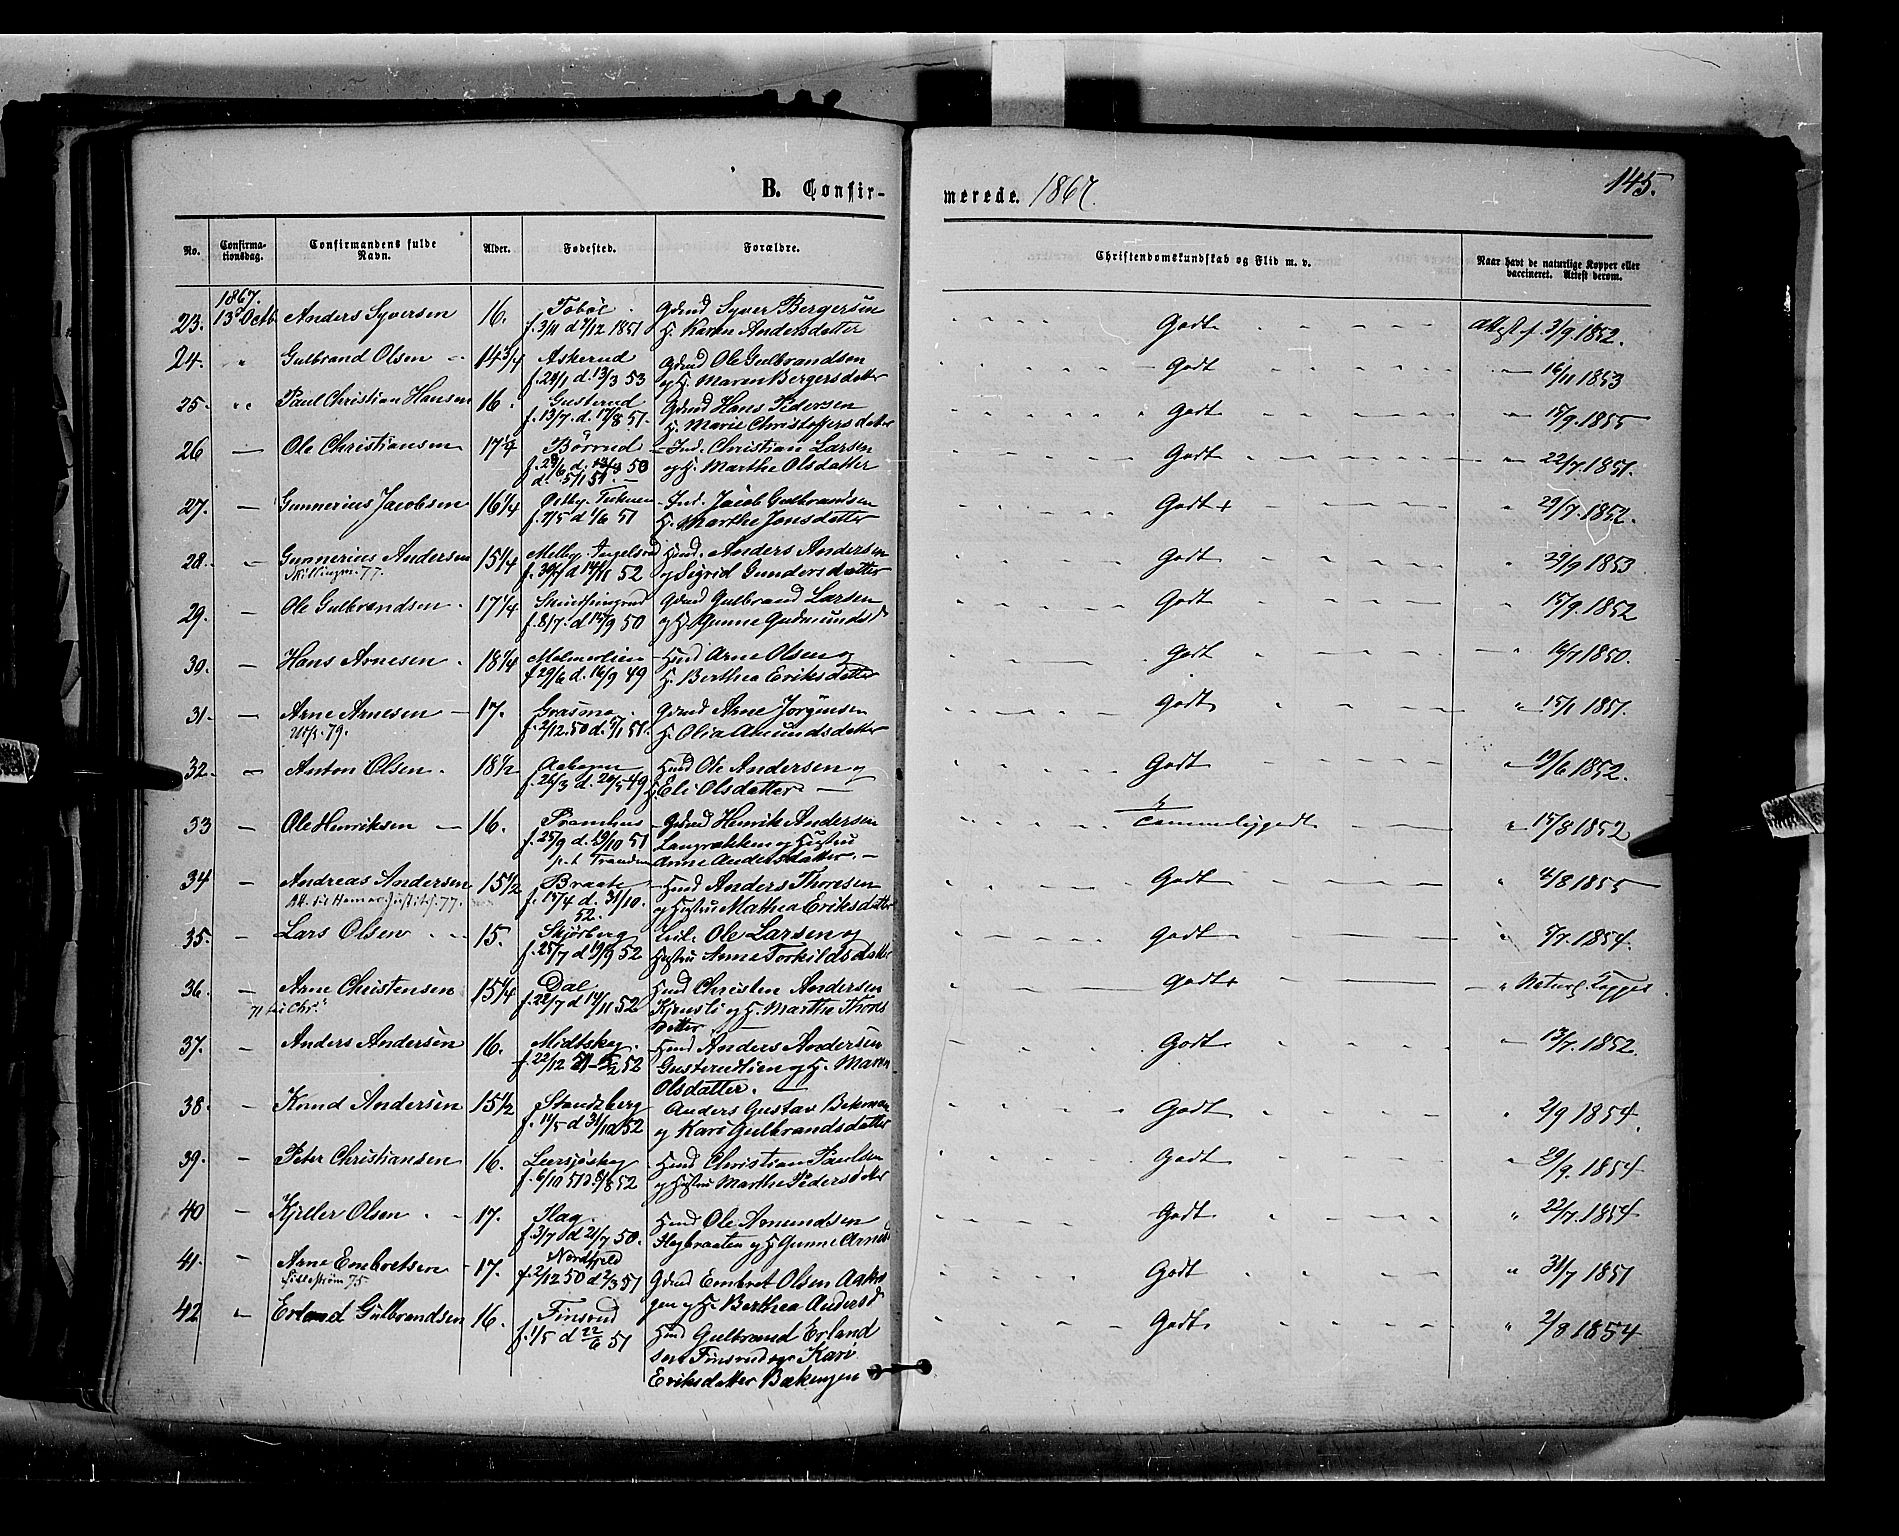 B. Confir-
merede. 1867.
145.
No.
Confirma-
tionsdag.
Confirmandens fulde
Navn.
Alder.
Fødested.
Forældre.
Christendomskundskab og Flid m. v.
Naar havt de naturlige Kopper eller
vaccineret. Attest derom.
1867.
23. 13 Octb Anders Syversen 16. Tobøl. Gdmd Syver Bergersen Godt Attest f. 3/9. 1852.
f. 3/11 d 7/12 1851 H. Karen Andersdatter
24. " Gulbrand Olsen 14 3/4 Askerud Gdmd Ole Gulbrandsen Godt 16/11 1853
f. 24/1 d. 13/3 53 og H. Maren Bergersdatter
25. " Paul Christian Hansen 16. Gusterud Gdmd Hans Pedersen Godt 15/9. 1855
f. 13/7. d. 17/8 51. H. Marie Christoffersdatter
26 — Ole Christiansen 17 1/4 Børrud Ind. Christian Larsen Godt 22/7. 1851.
f. 29/6 d. 50 og H. Marthe Olsdatter
d. 5/1 51. —
27. — Gunnerius Jacobsen 16 1/4 Østby Ind. Jacob Gulbrandsen Godt+ 29/7. 1852.
f. 7/5 d 1/6 51 H. Marthe Jonsdatter
28. — Gunnerius Andersen 15 1/4 Melby Husmd. Anders Andersen Godt 29/9 1853
77. f. 30/7 d 14/11 52 og Sigrid Gundersdatter
29. — Ole Gulbrandsen 17 1/4 Gdmd Gulbrand Larsen Godt 15/9. 1852
f. 8/7. d 15/9 50 og H. Gunne Gudmundsd
30. — Hans Arnesen 18 1/4 Malmerlien Husmd Arne Olsen og Godt 1850.
f 29/6 d. 16/9 49 H. Berthea Eriksdatter
31. — Arne Arnesen 17. Grasmo. Gdmd Arne Jørgensen Godt 15/1 1851.
79. f. 2/12. 50 d. 5/1 51. H. Olia Amundsdatter
32. — Anton Olsen. 18 1/2 Aabogen Husmd Ole Andersen og Godt 19/6 1852.
f. 26/3 d. 20/5 49 H. Eli Olsdatter —
33 — Ole Henriksen — 16. Framhus Gdmd Henrik Andersen Temmeliggodt 15/8 1852
f. 25/9 d. 19/10 51 Langrækken og Hustru
Anne Andersdatter. —
34 — Andreas Andersen 15 1/2 Braate Husmd Anders Thoresen Godt 4/8 1855
til Hamar 77. f. 15/4 d. 31/10. og Hustru Mathea Eriksdatter
52.
35. — Lars Olsen 15. Skjørberg Ole Larsen og Godt 5/7. 1854.
f. 25/7 d 19/9 52 Hustru Anne Torkildsdatter
36. — Arne Christensen 15 1/4 Dal Husmd Christen Andersen Godt+ Naturl. Kopper.
71 til Chr.a f. 22/7 d 14/11 52 og H. Marthe Thores
datter
37. — Anders Andersen 16. Midtskog. Husmd Anders Andersen Godt 13/7. 1852.
f. 22/12 51 52 Gusterudlien og H. Maren
Olsdatter. —
38. — Knud Andersen 15 1/2 Strandsberg Anders Gustav Bekman Godt 2/9 1854.
f. 11/5 d 31/10 52 og Kari Gulbrandsdatter
39. — Peter Christiansen 16. Leersjøskog Husmd Christian Paulsen Godt 29/9. 1854
f. 6/10 51 d. 8/8 52 og Hustru Marthe Pedersdatter
40 — Kjeller Olsen 17. Flag. Husmd Ole Amundsen Godt 22/7. 1854
f. 3/7 d 21/7 50. Flagbraaten og H. Gunne Arnesd
41. — Arne Embretsen 17. Nordfjeld Gdmd Embret Olsen Aabo Godt 31/7 1851
Lillestrøm 75 f. 2/12 50 d 2/3 51 gen og H. Berthea Andersd
42 " Erland Gulbrandsen 16. Finsrud Husmd Gulbrand Erland Godt 2/8 1854
f. 1/5 d 22/6 51 sen Finsrud og Kari
Eriksdatter Bækengen